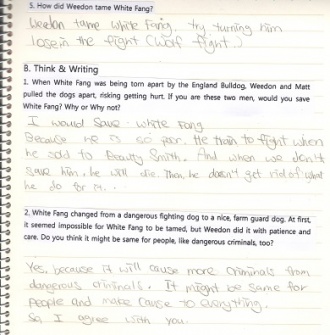 5. How did Weedon tame White Fang?
Weedon tame white Fang. try turning him
lose in the fight (wolf fight.)
B. Think & Writing
1. When White Fang was being torn apart by the England Bulldog, Weedon and Matt
pulled the dogs apart, risking getting hurt. If you are these two men, would you save
White Fang? Why or Why not?
I would save white Fang
Because he is so He train to fight when
he sold to Beauty Smith. And when we don't
save him, he will die. Then he doesn't get rid of what
he do
2. White Fang changed from a dangerous fighting dog to a nice, farm guard dog. At first,
it seemed impossible for White Fang to be tamed, but Weedon did it with patience and
care. Do you think it might be same for people, like dangerous criminals, too?
Yes, because it will cause more criminals from
dangerous criminals. It might be same for
people and make cause to everything.
So I agree with you.